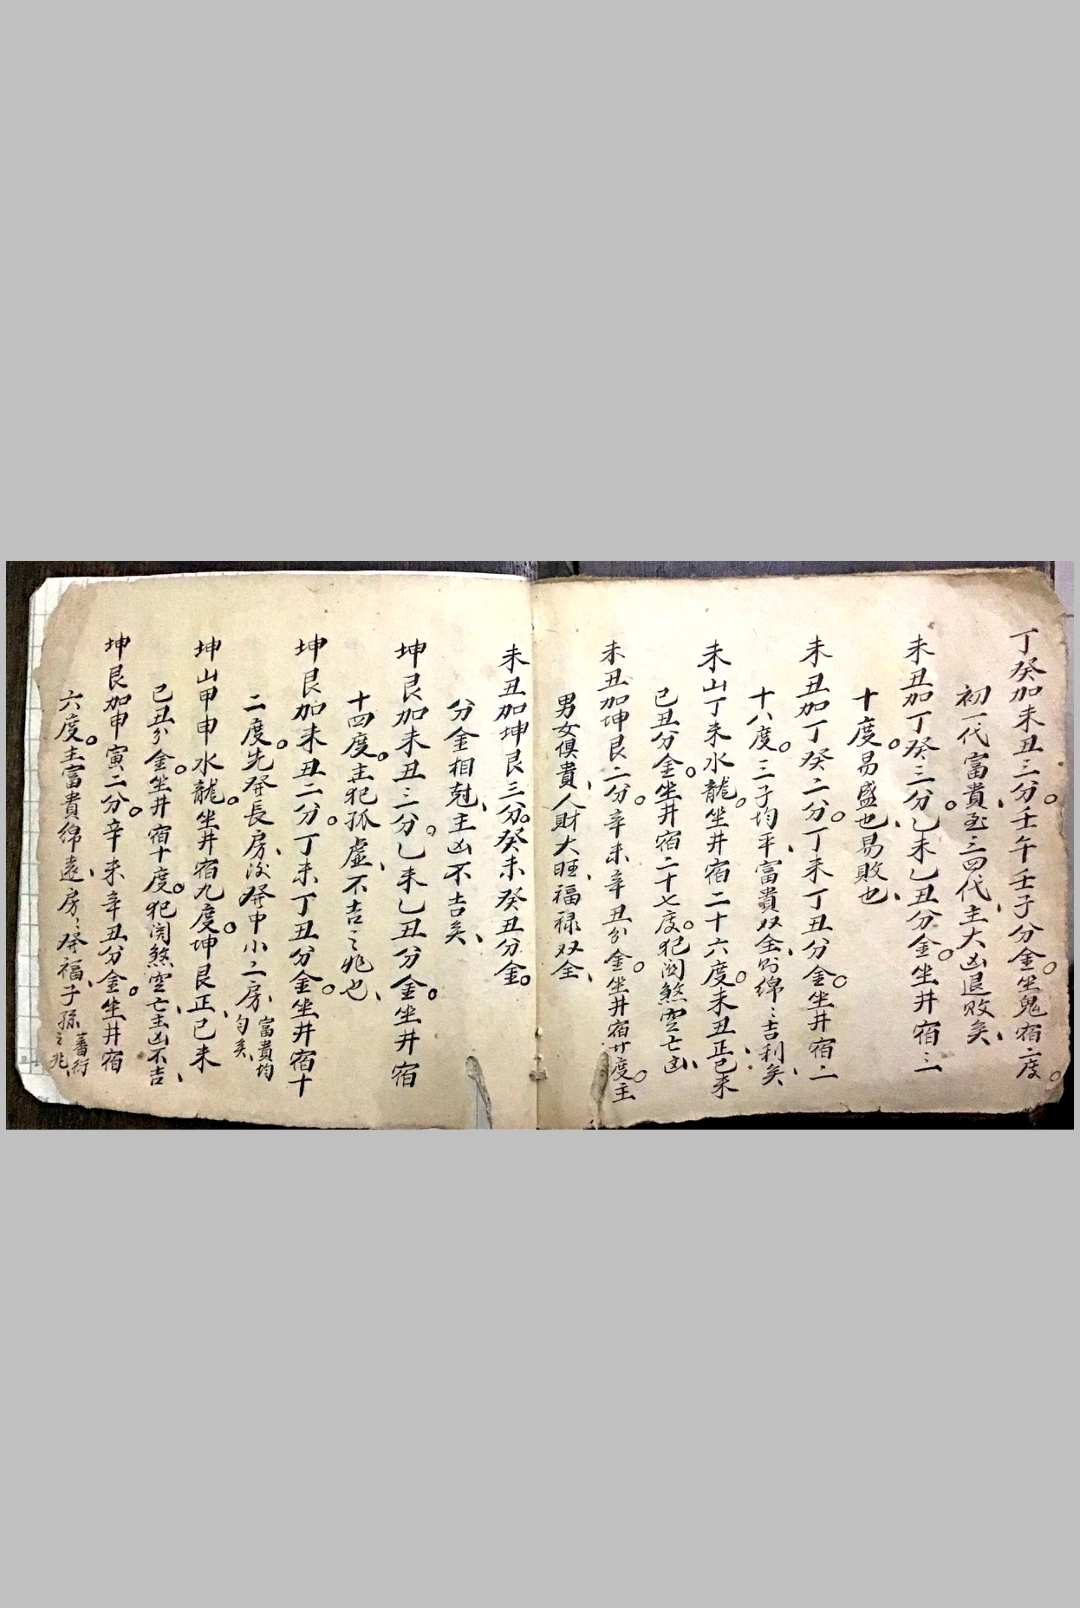 丁癸加未丑三分。壬午壬子分金。坐鬼宿二度。
初一代富貴、至三四代、主大凶退敗矣、
未丑加丁癸三分。乙未乙丑分金。坐井宿三
十度。易盛也、易敗也、
未丑加丁癸二分。丁未丁丑分金。坐井宿二
十八度。三子均平、富貴双全、綿〻吉利矣、
未山丁未水龍。坐井宿二十六度。未丑正、己未
己丑分金。坐井宿二十七度。犯関煞空亡、凶、
未丑加坤艮二分。辛未辛丑分金。坐井宿廿度。主
男女俱貴、人財大旺、福禄双全、
未丑加坤艮三分。癸未癸丑分金。
分金相尅、主凶不吉矣、
坤艮加未丑三分。乙未乙丑分金。坐井宿
十四度。主犯孤虚、不吉之兆也、
坤艮加未丑二分。丁未丁丑分金。坐井宿十
二度。先發長房、後發中小二房、富貴均匀矣、
坤山甲申水龍。坐井宿九度。坤艮正、己未
己丑分金。坐井宿十度。犯関煞空亡、主凶不吉、
坤艮加申寅二分。辛未辛丑分金。坐井宿
六度。主富貴綿遠、房〻發福、子孫蕃衍之兆、